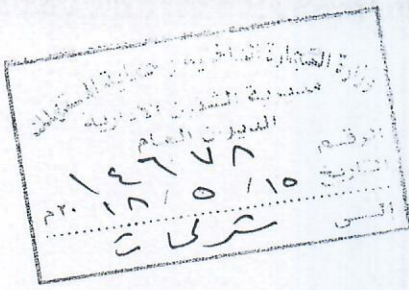 وزارة التجارة الداخلية وحماية المستهلك
مديرية الشؤون الادارية
الديوان العام
الرقم ١٤٦٧٨
التاريخ ١٥ / ٥ / ٢٠١٨م
الى شركات